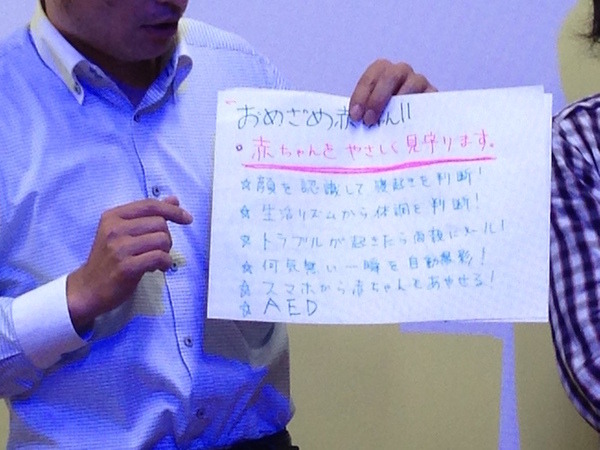 おめざめ赤ちゃん!!
。赤ちゃんを やさしく見守ります。
☆ 顔を認識して 寝起きを判断!
☆ 生活リズムから体調を判断!
☆ トラブルが起きたら 両親にメール!
☆ 何気無い一瞬を自動撮影!
☆ スマホから赤ちゃんをあやせる!
☆ AED